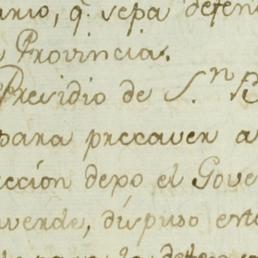 ario, q. sepa defen
Provincia.
Presidio de S.n
para precaver a
ección depo el Gove
averde, dispuso est